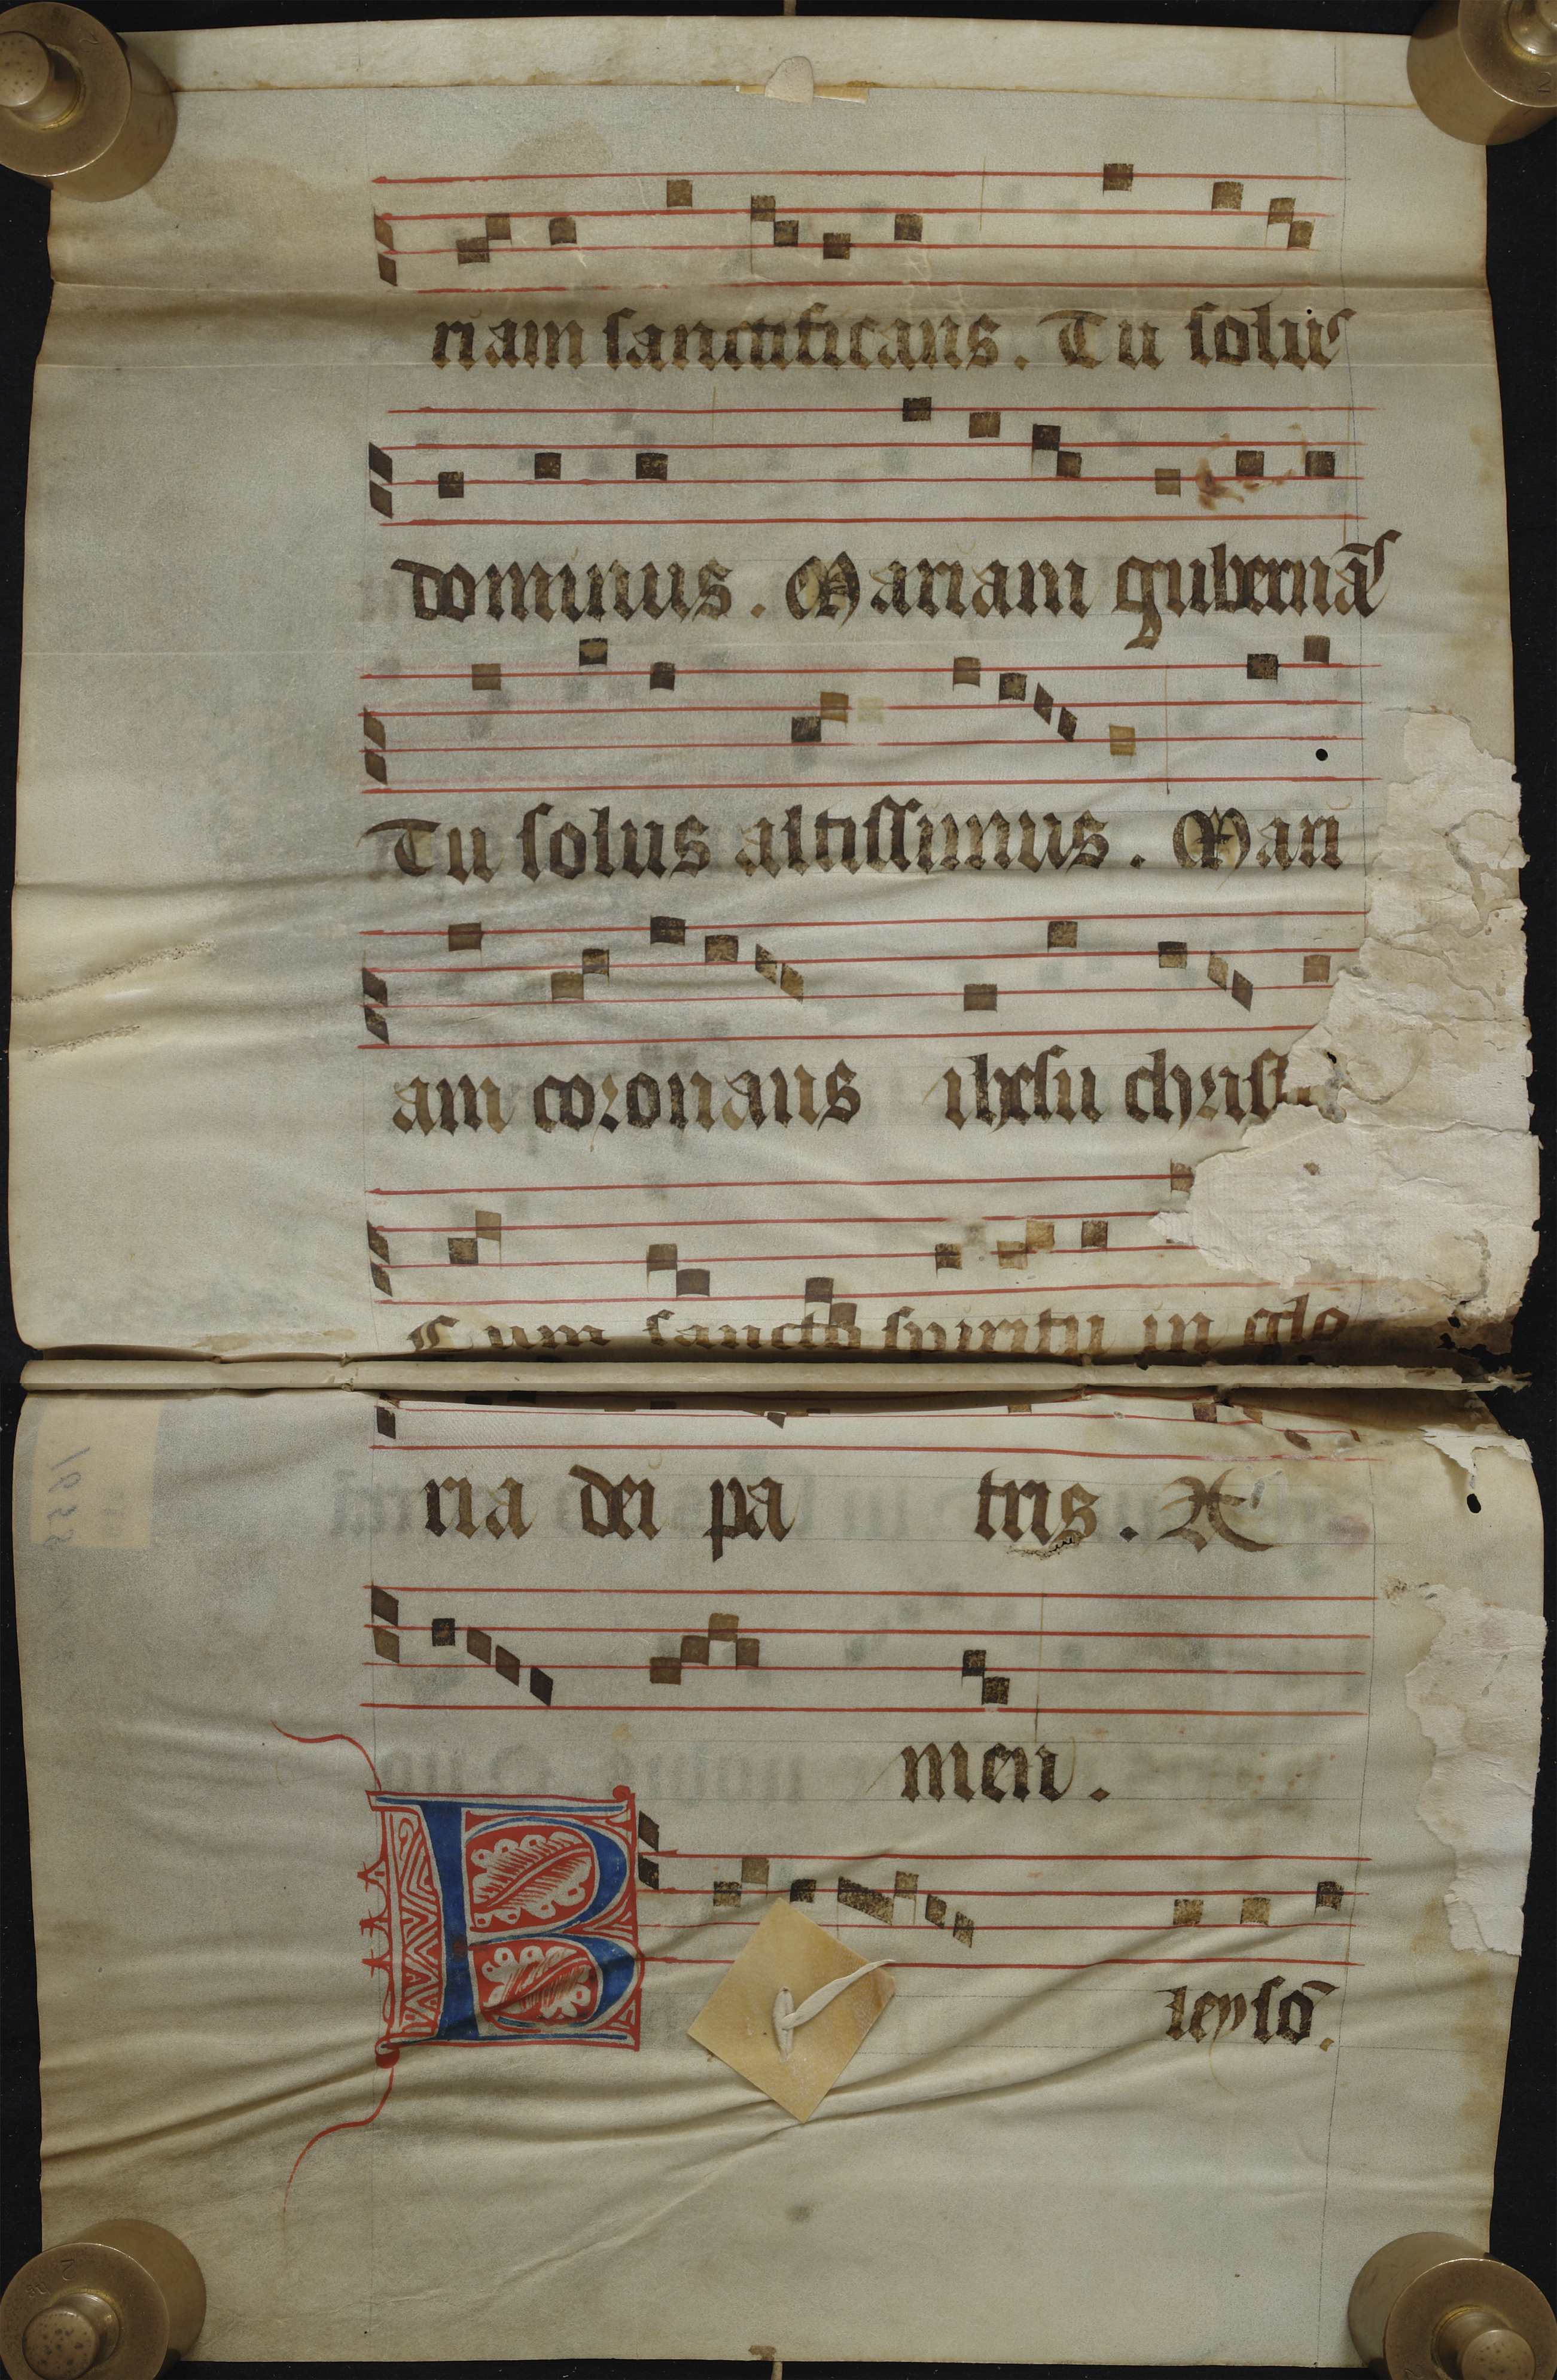 riam sanctificans. Tu solus
dominus. Mariam gubernãs
Tu solus altissimus. Mari
am coronans ihesu chris
Cum sancto spiritu in glo
ria dei pa tris. A
men.
K
leysõ.